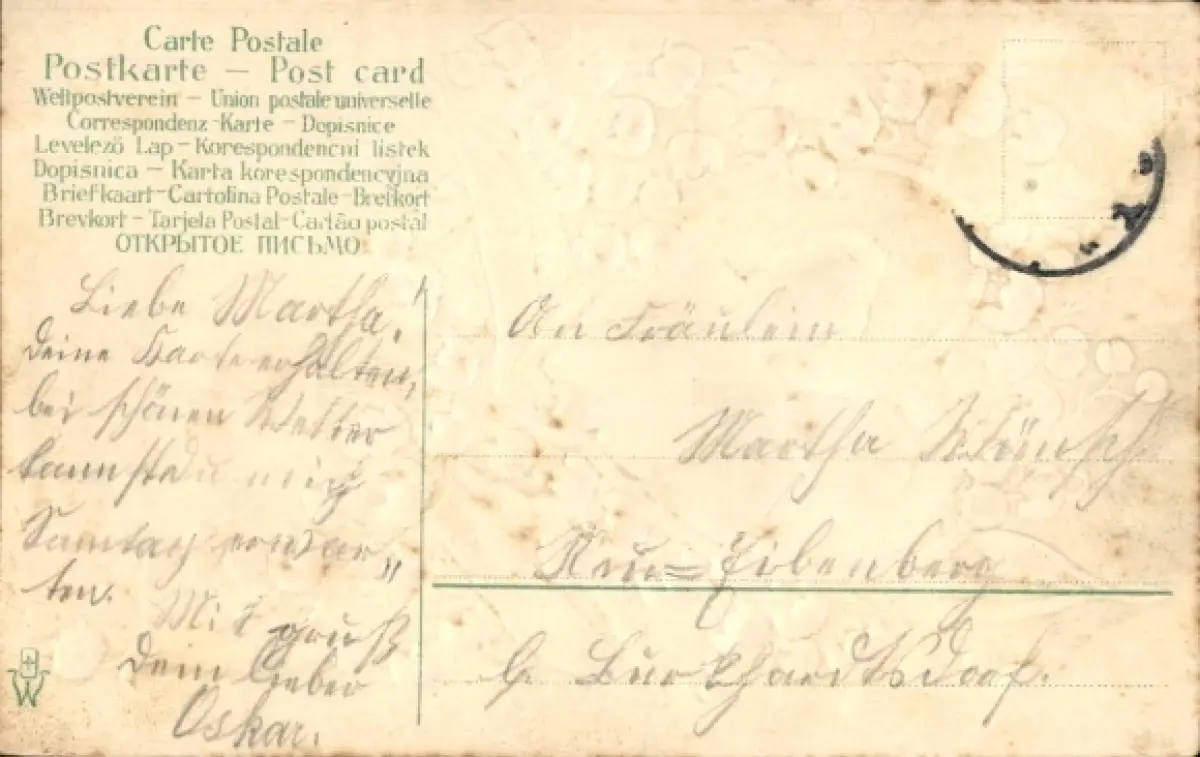 Carte Postale
Postkarte — Post card
Weltpostverein — Union postale universelle
Correspondenz-Karte — Dopisnice
Levelező Lap — Korespondencni listek
Dopisnica — Karta korespondencyjna
Briefkaart-Cartolina Postale-Brefkort
Brevkort — Tarjela Postal-Cartão postal
ОТКРЫТОЕ ПИСЬМО
Liebe Martha,
Deine Karte erhalten,
bei schönen Wetter
kannst du mich
Sonntag erwar„
ten.
Mit gruß
Dein lieber
Oskar.
An Fräulein
Martha
Neu=Eibenberg
b. Burkhardtsdorf.
W